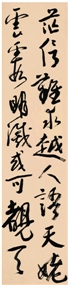 茫信難求越人語天姥
雲霓明滅或可覩天